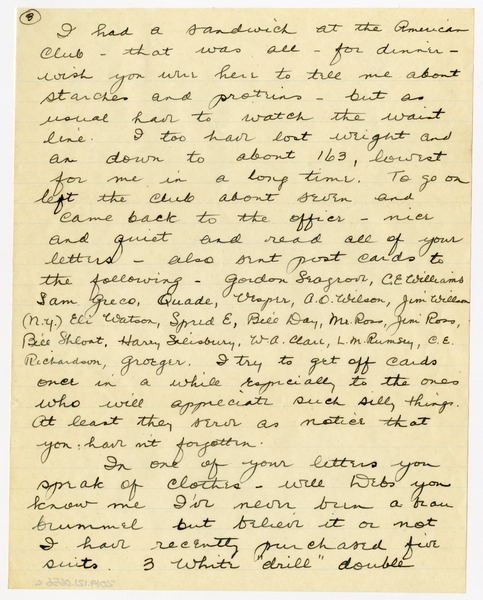 3
I had a sandwich at the American
Club - that was all - for dinner -
wish you were here to tell me about
starches and proteins - but as
usual have to watch the waist
line. I too have lost weight and
am down to about 163, lowest
for me in a long time. To go on
left the club about seven and
came back to the office - nice
and quiet and read all of your
letters - also sent post cards to
the following - Gordon Seagrove, C.E. Williams
Sam Greco, Quade, Vesper, A.O. Wilson, Jim Willson
(N.Y.) Eli Watson, Speed E, Bill Day, Mr. Ross, Jim Ross,
Bill Sloat, Harry Salisbury, W.A. Clare, L.M. Rumsey, C.E.
Richardson, Groeger. I try to get off cards
once in a while especially to the ones
who will appreciate such silly things.
At least they serve as notice that
you haven't forgotten.
In one of your letters you
speak of clothes - well Debs you
know me I've never been a beau
brummel but believe it or not
I have recently purchased five
suits. 3 White "drill" double
2019.121.0656 c